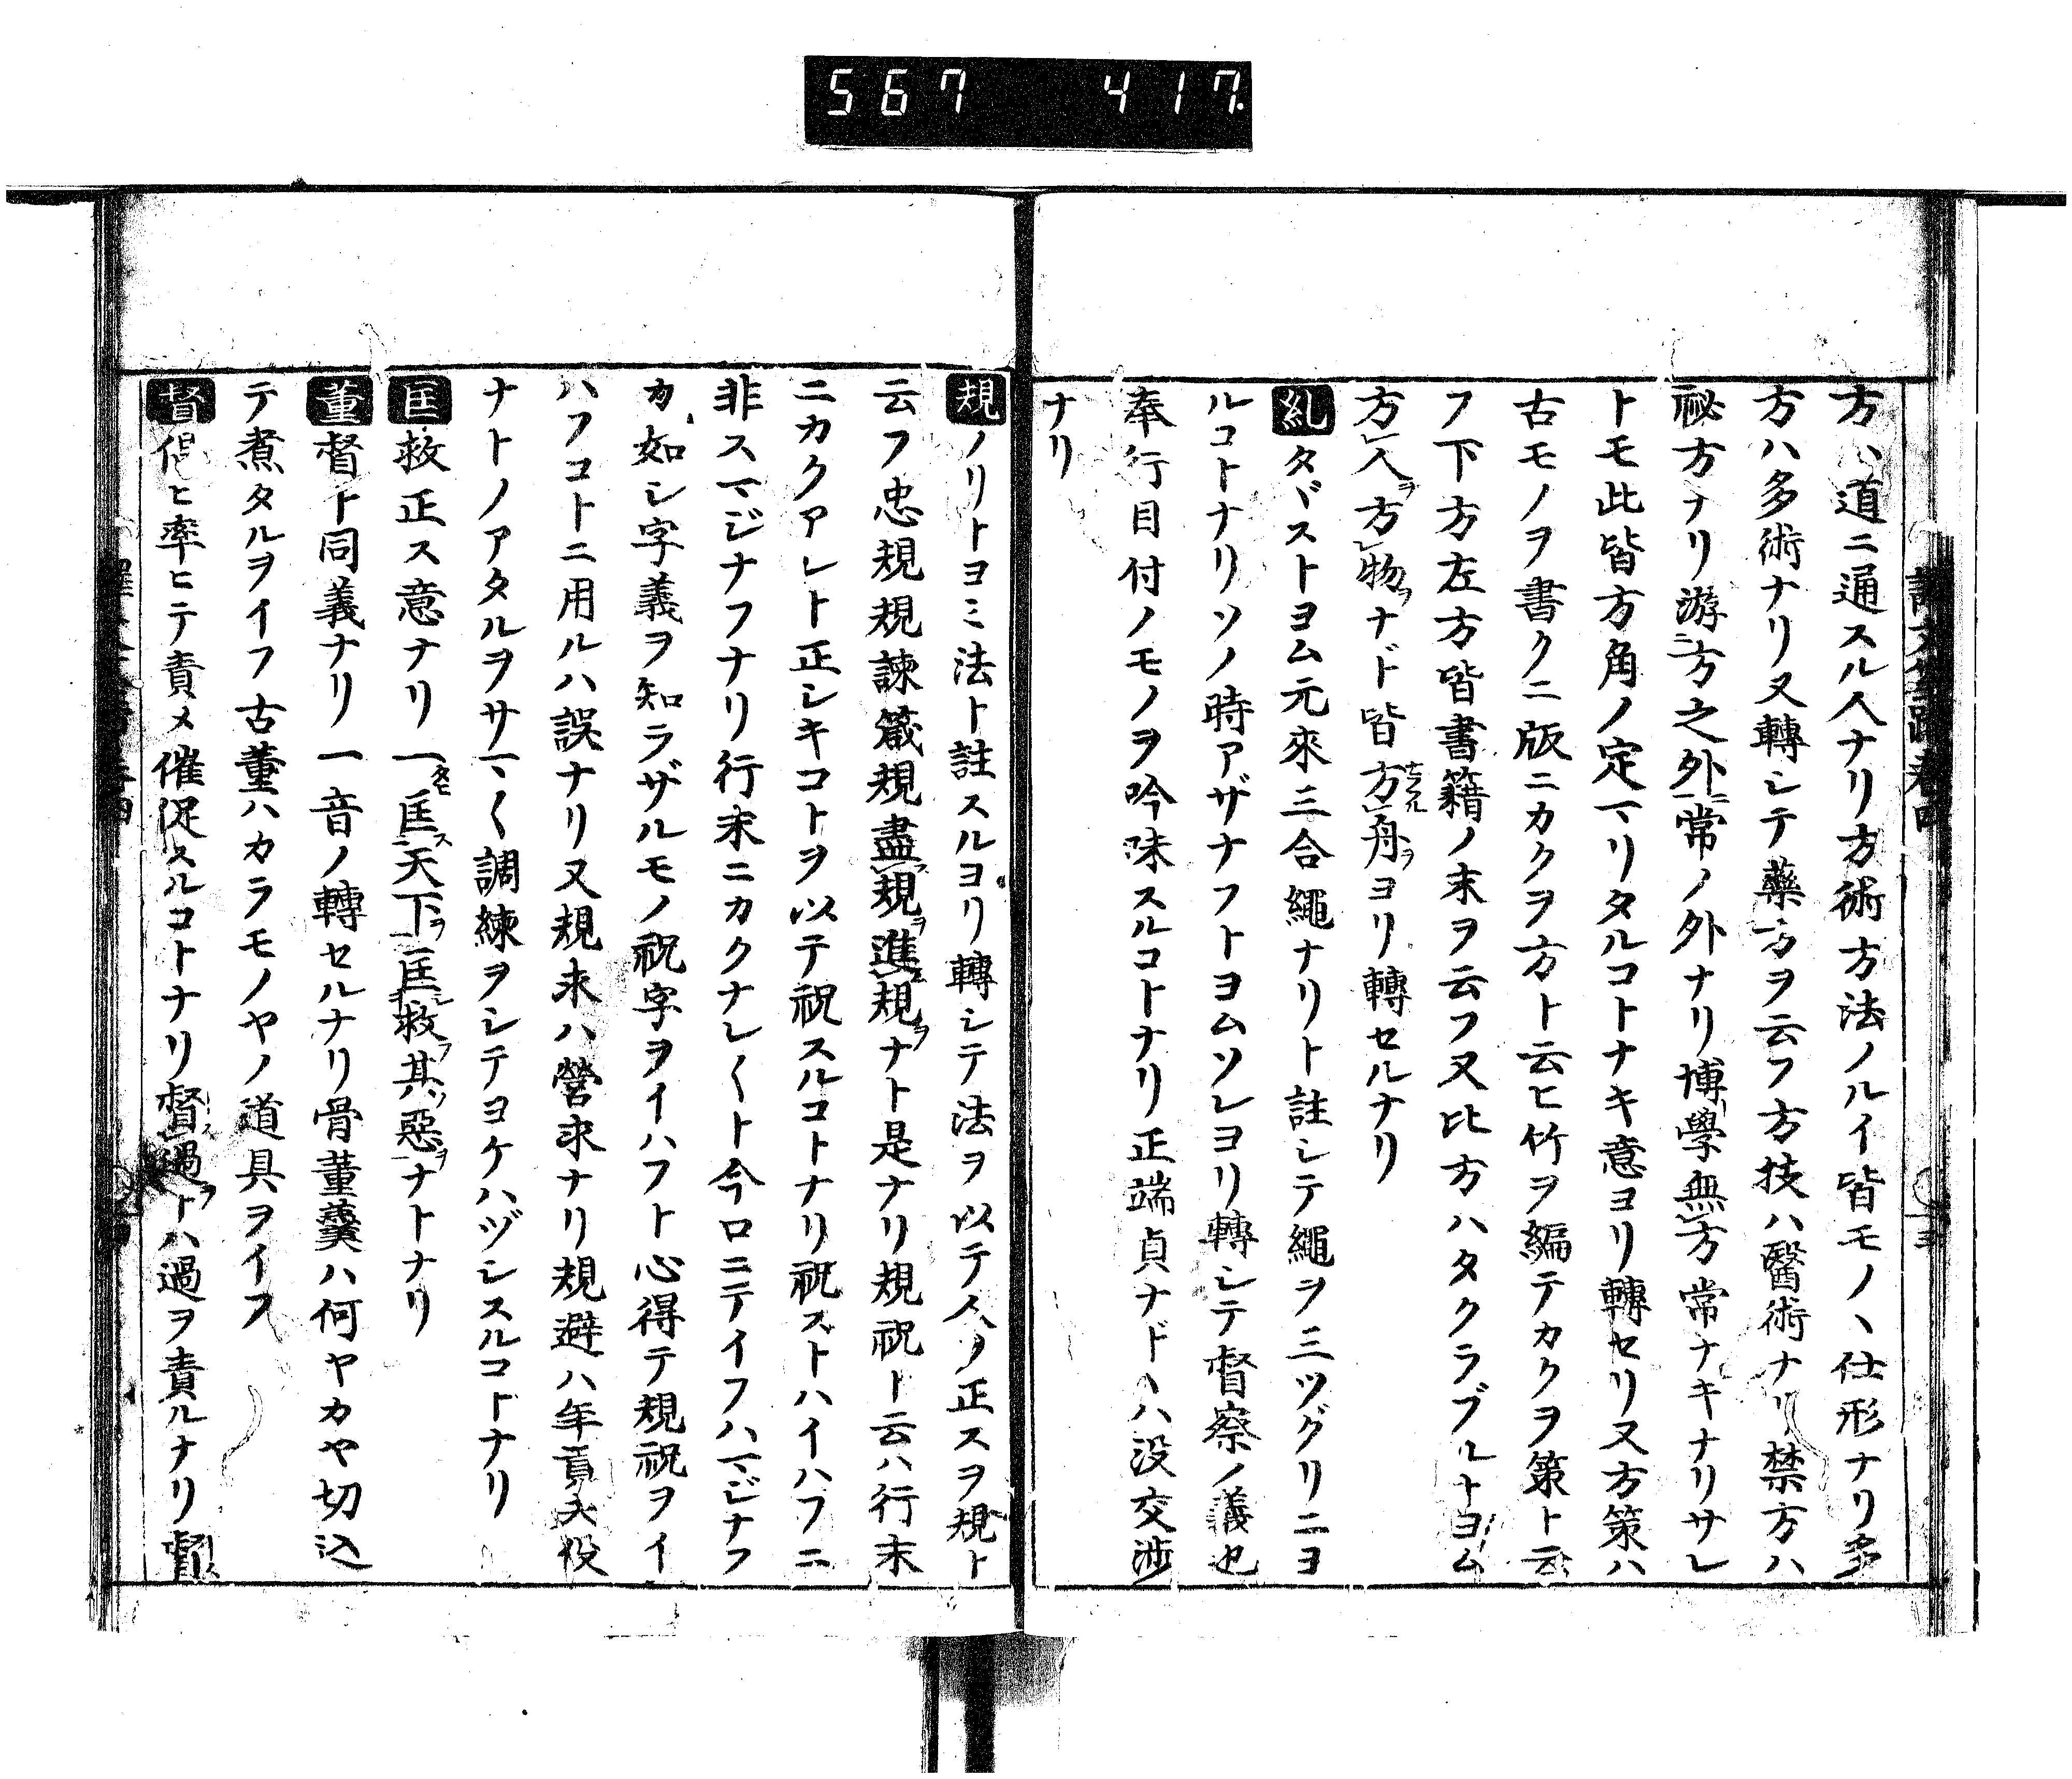 567 417
方ハ道ニ通スル人ナリ方術方法ノルイ皆モノヽ仕形ナリ多
方ハ多術ナリ又轉シテ藥方ヲ云フ方技ハ醫術ナリ禁方ハ
祕方ナリ游方之外常ノ外ナリ博學無方常ナキナリサレ
トモ此皆方角ノ定マリタルコトナキ意ヨリ轉セリ又方策ハ
古モノヲ書クニ版ニカクヲ方ト云ヒ竹ヲ編テカクヲ策ト云
フ下方左方皆書籍ノ末ヲ云フ又比方ハタクラブルトヨム
方人方物ナド皆方舟ヨリ轉セルナリ
糺タヾストヨム元來三合繩ナリト註シテ繩ヲ三ツグリニヨ
ルコトナリソノ時アザナフトヨムソレヨリ轉シテ督察ノ義也
奉行目付ノモノヲ吟味スルコトナリ正端貞ナドヽハ没交渉
ナリ
規ノリトヨミ法ト註スルヨリ轉シテ法ヲ以テ人ヲ正スヲ規ト
云フ忠規規諫箴規盡規進規ナト是ナリ規祝ト云ハ行末
ニカクアレト正シキコトヲ以テ祝スルコトナリ祝ストハイハフニ
非スマジナフナリ行末ニカクナレ〱ト今口ニテイフハマジナフ
カ如シ字義ヲ知ラザルモノ祝字ヲイハフト心得テ規祝ヲイ
ハフコトニ用ルハ誤ナリ又規求ハ營求ナリ規避ハ年貢夫役
ナトノアタルヲサマ〱調練ヲシテヨケハヅシスルコトナリ
匡救正ス意ナリ一匡天下匡救其惡ナトナリ
董督ト同義ナリ一音ノ轉セルナリ骨董羹ハ何ヤカヤ切込
テ煮タルヲイフ古董ハカラモノヤノ道具ヲイフ
督倡ヒ率ヒテ責メ催促スルコトナリ督過トハ過ヲ責ルナリ督